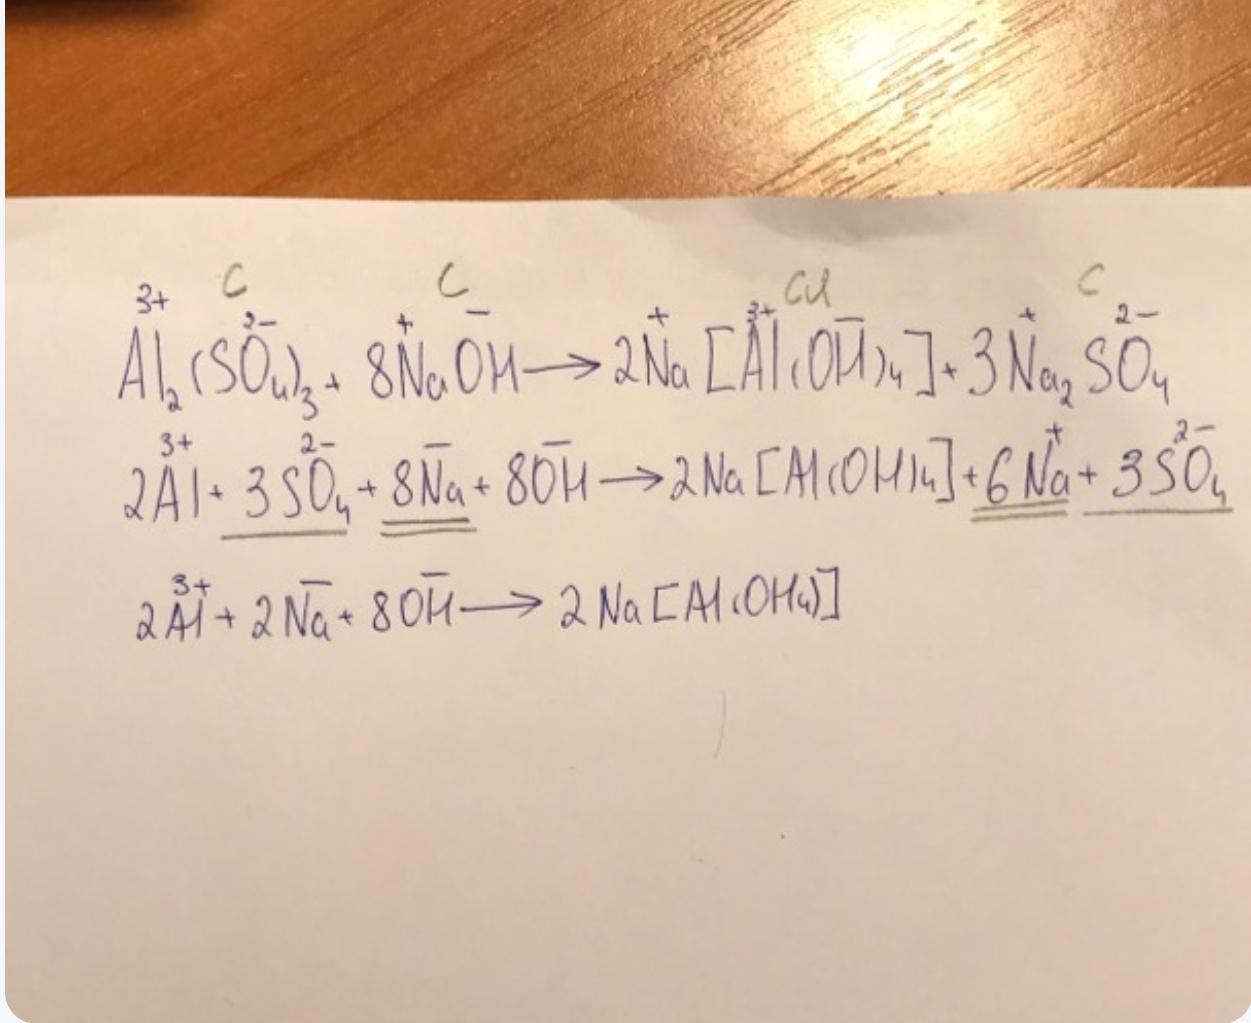 C C Сл C
Al₂³⁺(SO₄²⁻)₃ + 8Na⁺OH⁻ → 2Na⁺[Al³⁺(OH⁻)₄] + 3Na₂⁺SO₄²⁻
2Al³⁺ + 3SO₄²⁻ + 8Na⁻ + 8OH⁻ → 2Na[Al(OH)₄] + 6Na⁺ + 3SO₄²⁻
2Al³⁺ + 2Na⁻ + 8OH⁻ → 2Na[Al(OH₄)]